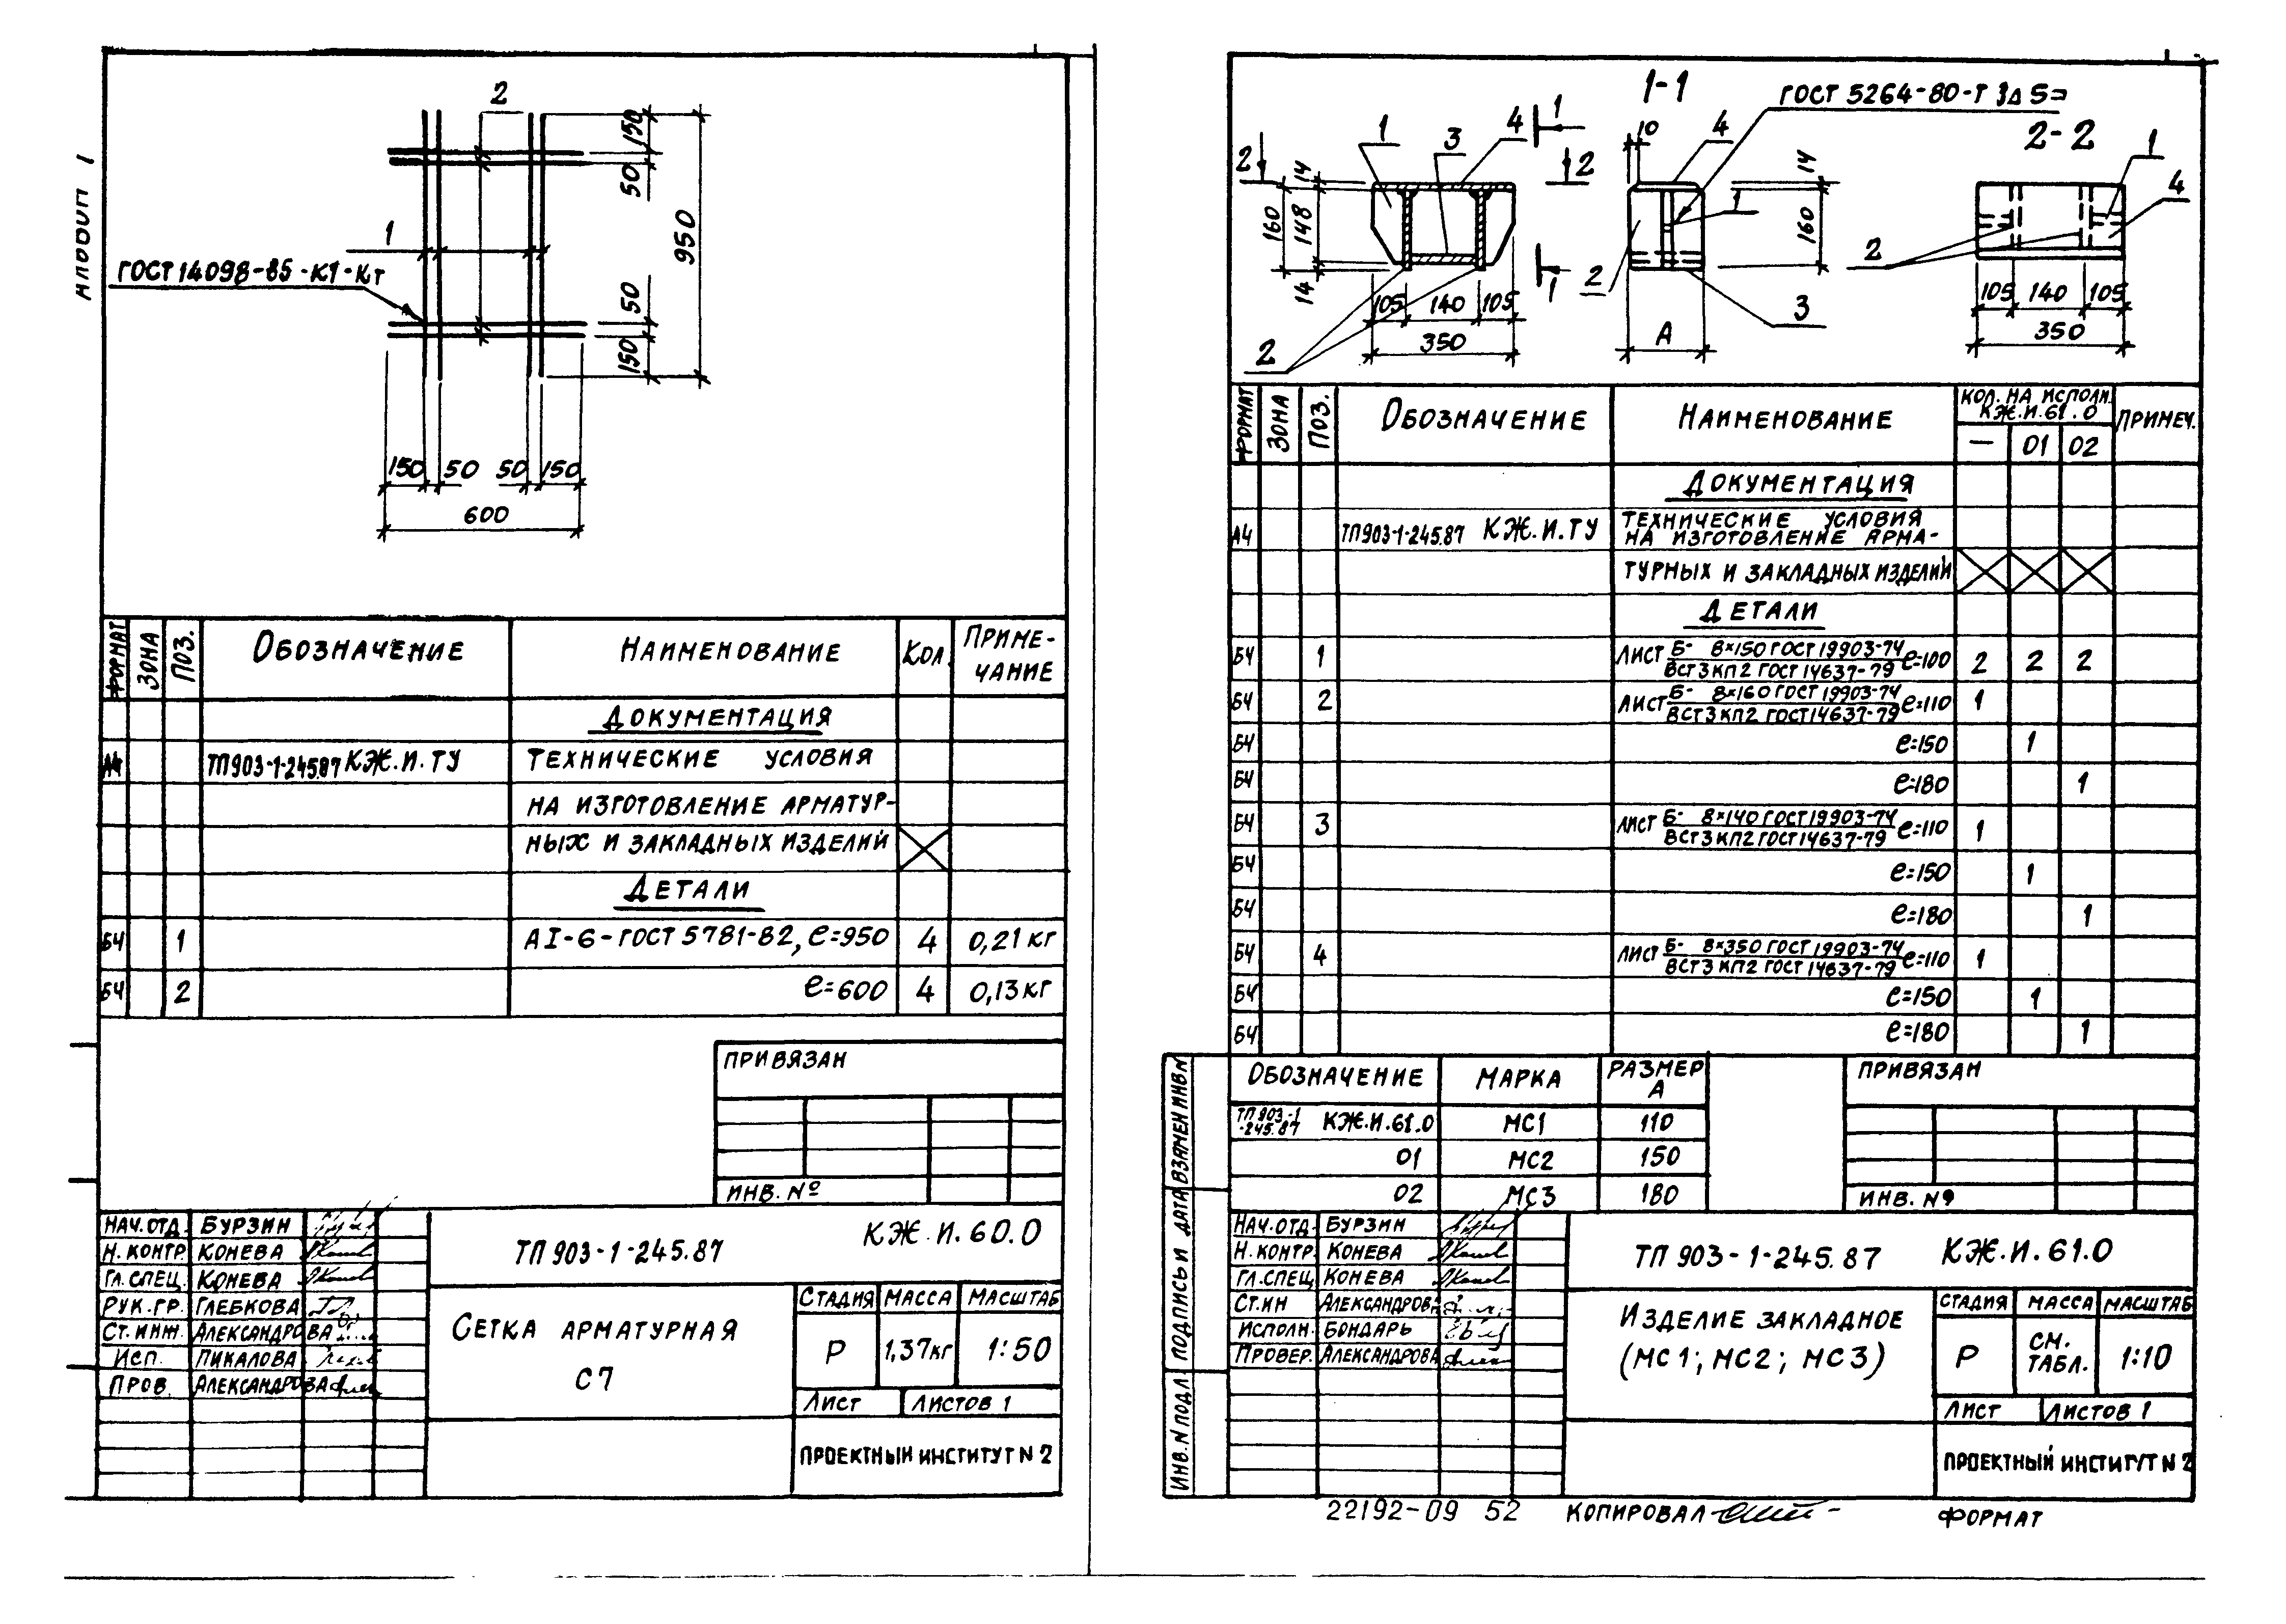 АЛЬБОМ 1
2
150
50
950
1
ГОСТ 14098-85-К1-Кт
50
150
150 50 50 150
600
ФОРМАТ ЗОНА ПОЗ. ОБОЗНАЧЕНИЕ НАИМЕНОВАНИЕ КОЛ. ПРИМЕ-
ЧАНИЕ
ДОКУМЕНТАЦИЯ
А4 ТП903-1-245.87 КЖ.И.ТУ ТЕХНИЧЕСКИЕ УСЛОВИЯ
НА ИЗГОТОВЛЕНИЕ АРМАТУР-
НЫХ И ЗАКЛАДНЫХ ИЗДЕЛИЙ
ДЕТАЛИ
БЧ 1 АI-6-ГОСТ 5781-82, ℓ=950 4 0,21 кг
БЧ 2 ℓ=600 4 0,13 кг
ПРИВЯЗАН
ИНВ. №
НАЧ.ОТД. БУРЗИН
Н. КОНТР. КОНЕВА
ГЛ. СПЕЦ. КОНЕВА
РУК. ГР. ГЛЕБКОВА
СТ. ИНЖ. АЛЕКСАНДРОВА
ИСП. ПИКАЛОВА
ПРОВ. АЛЕКСАНДРОВА
ТП 903-1-245.87 КЖ.И.60.0
СЕТКА АРМАТУРНАЯ
С7
СТАДИЯ МАССА МАСШТАБ
Р 1,37кг 1:50
ЛИСТ ЛИСТОВ 1
ПРОЕКТНЫЙ ИНСТИТУТ N 2
1-1
ГОСТ 5264-80-Т3
2-2
1 3 4 1
2 2
14
160 148
14
105 140 105
350
2
1
10 4
14
1
160
2
3
А
1
4
2
105 140 105
350
ФОРМАТ ЗОНА ПОЗ. ОБОЗНАЧЕНИЕ НАИМЕНОВАНИЕ КОЛ. НА ИСПОЛН.
КЖ.И.61.0 ПРИМЕЧ.
— 01 02
ДОКУМЕНТАЦИЯ
А4 ТП903-1-245.87 КЖ.И.ТУ ТЕХНИЧЕСКИЕ УСЛОВИЯ
НА ИЗГОТОВЛЕНИЕ АРМА-
ТУРНЫХ И ЗАКЛАДНЫХ ИЗДЕЛИЙ
ДЕТАЛИ
БЧ 1 ЛИСТ Б- 8×150 ГОСТ 19903-74 ℓ=100 2 2 2
ВСТ3КП2 ГОСТ 14637-79
БЧ 2 ЛИСТ Б- 8×160 ГОСТ 19903-74 ℓ=110 1
ВСТ3КП2 ГОСТ 14637-79
БЧ ℓ=150 1
БЧ ℓ=180 1
БЧ 3 ЛИСТ Б- 8×140 ГОСТ 19903-74 ℓ=110 1
ВСТ3КП2 ГОСТ 14637-79
БЧ ℓ=150 1
БЧ ℓ=180 1
БЧ 4 ЛИСТ Б- 8×350 ГОСТ 19903-74 ℓ=110 1
ВСТ3КП2 ГОСТ 14637-79
БЧ ℓ=150 1
БЧ ℓ=180 1
ОБОЗНАЧЕНИЕ МАРКА РАЗМЕР
А
ТП 903-1
-245.87 КЖ.И.61.0 МС1 110
01 МС2 150
02 МС3 180
ПРИВЯЗАН
ИНВ. №
ИНВ. N ПОДЛ. ПОДПИСЬ И ДАТА ВЗАМЕН ИНВ N
НАЧ.ОТД. БУРЗИН
Н. КОНТР. КОНЕВА
ГЛ. СПЕЦ. КОНЕВА
СТ.ИН АЛЕКСАНДРОВА
ИСПОЛН. БОНДАРЬ
ПРОВЕР. АЛЕКСАНДРОВА
ТП 903-1-245.87 КЖ.И.61.0
ИЗДЕЛИЕ ЗАКЛАДНОЕ
(МС1; МС2; МС3)
СТАДИЯ МАССА МАСШТАБ
Р СМ.
ТАБЛ. 1:10
ЛИСТ ЛИСТОВ 1
ПРОЕКТНЫЙ ИНСТИТУТ N 2
22192-09 52 КОПИРОВАЛ ФОРМАТ